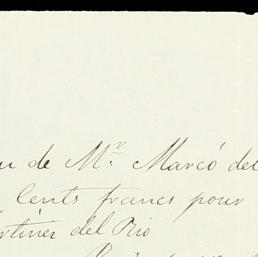 u de Mr. Marcó del
cents francs pour
rtinez del Rio